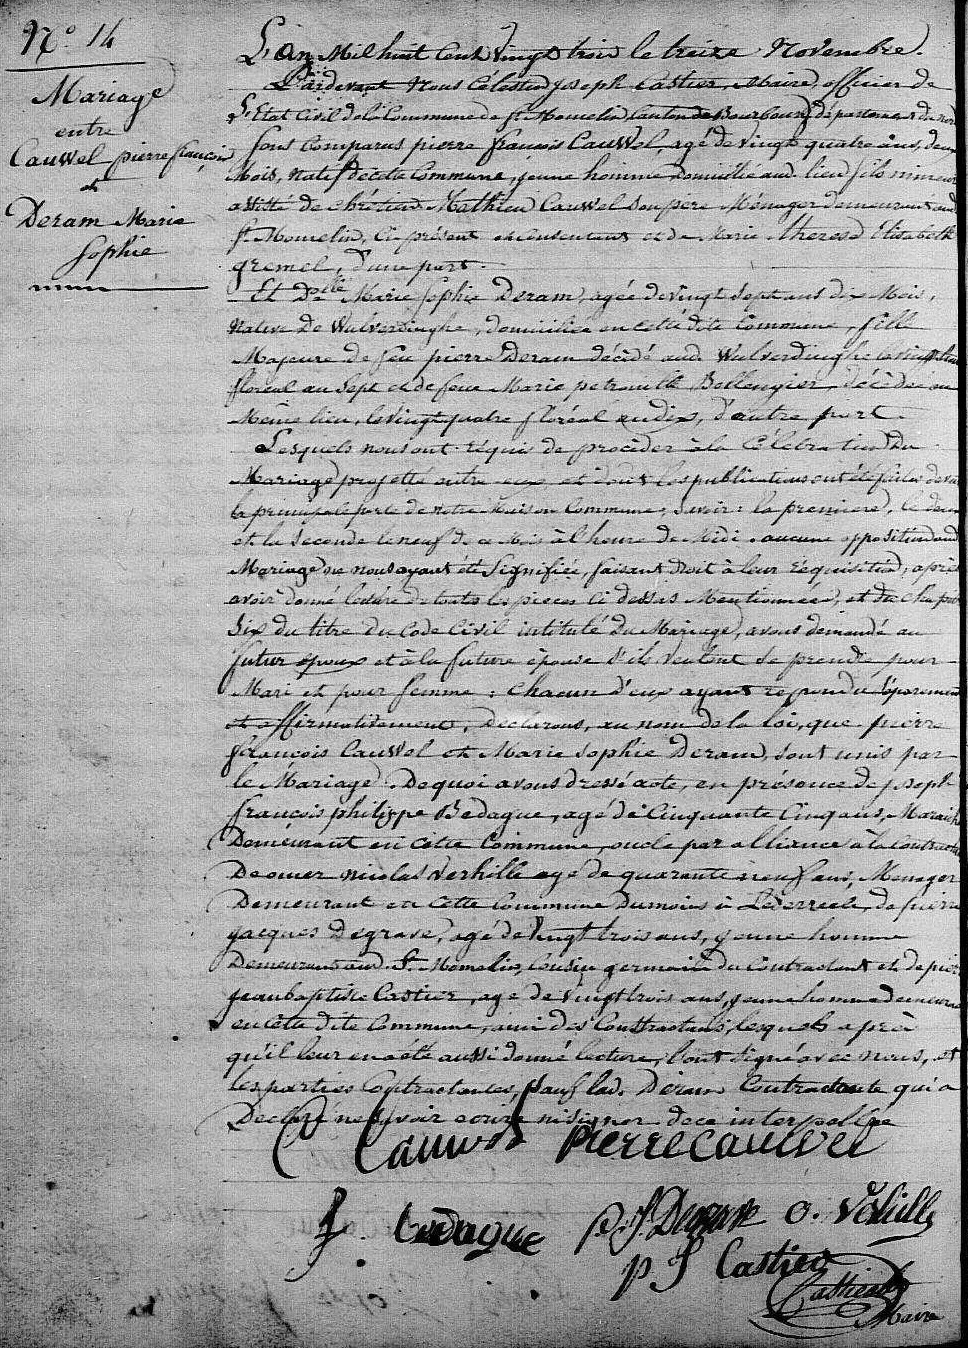 N.° 14
Mariage
entre
Cauwel pierre françois
et
Deram Marie
Sophie
L'an Mil huit Cent vingt trois le treize Novembre.
Pardevant Nous Célestin joseph Castier, Maire, officier de
L'Etat Civil de la Commune de St Momelin, Canton de Bourbourg, département du nord
sont Comparus pierre francois Cauwel, agé de vingt quatre ans, deux
Mois, natif de cette Commune, jeune homme domicilié aud. lieu, fils mineur
assisté de chrétien Mathieu Cauwel son père Ménager demeurant aud.
St Momelin, ci présent et consentant et de Marie therese Elisabeth
gremel, d'une part.
Et Delle Marie Sophie Deram, agée de vingt sept ans dix Mois,
Native De Wulverdinghe, domiciliée en cette dite Commune, fille
Majeure de feu pierre Deram décédé aud. Wulverdinghe le vingt
floréal an Sept et de feue Marie petronille Bollengier décédée au
Même lieu, le vingt quatre floréal an dix, d'autre part.
Lesquels nous ont réquis de procéder à la Célébration Du
Mariage projetté entre eux et dont les publications ont été faites devant
la principale porte de notre Maison Commune, Savoir: la premiere, le deux
et la Seconde le neuf de ce Mois à l'heure de Midi. aucune opposition aud.
Mariage ne nous ayant été Signifiée, faisant Droit à leur réquisition, après
avoir donné lecture de toutes les pieces ci dessus Mentionnées, et du chapitre
Six du titre du Code Civil intitulé du Mariage, avons demandé au
futur époux et à la future épouse s'ils veulent se prendre pour
Mari et pour femme: chacun d'eux ayant repondu séparement
et affirmativement, Déclarons, au nom de la loi, que pierre
françois Cauwel et Marie Sophie Deram, sont unis par
le Mariage. De quoi avons dressé acte, en présence de joseph
françois philippe Bedague, agé de Cinquante Cinq ans, Maraicher
Demeurant en cette Commune, oncle par alliance à la Contractante
De omer nicolas Verhille agé de quarante neuf ans, Menager
Demeurant en Cette Commune Dumoins à Lederzeele, de pierre
jacques Degrave, agé de Vingt trois ans, jeune homme
Demeurant aud. St Momelin, Cousin germain du Contractant et de pierre
jean baptiste Castier, agé de vingt trois ans, jeune homme demeurant
en cette dite Commune, ami des Contractans, lesquels après
qu'il leur en a été aussi donné lecture, l'ont signé avec nous, et
les parties Contractantes, sauf lad. Deram Contractante qui a
Declaré ne savoir ecrire ni signer de ce interpellée
Cauwel Pierre cauwel
J. bedague p. J. Degrave O. Vehille
p J Castier
Castier
Maire